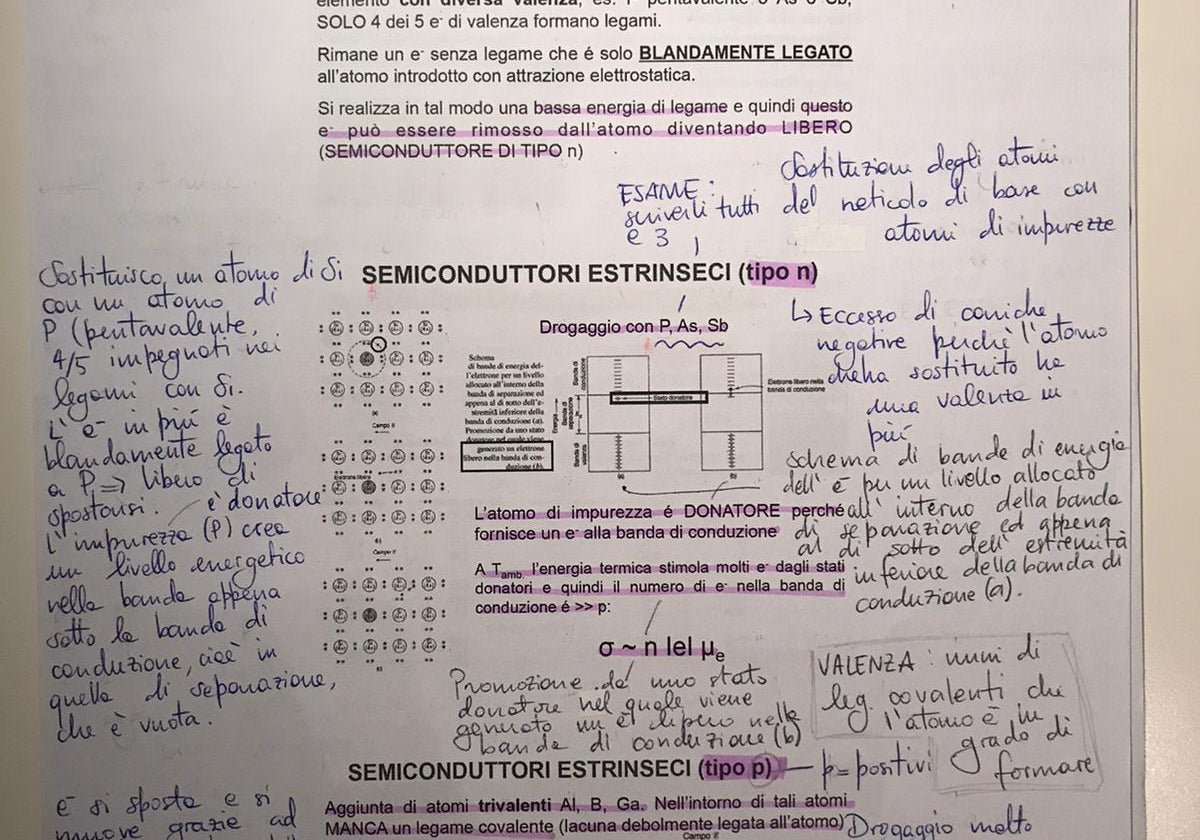 elemento con diversa valenza, es. P pentavalente o As o Sb,
SOLO 4 dei 5 e- di valenza formano legami.
Rimane un e- senza legame che é solo BLANDAMENTE LEGATO
all'atomo introdotto con attrazione elettrostatica.
Si realizza in tal modo una bassa energia di legame e quindi questo
e- può essere rimosso dall'atomo diventando LIBERO
(SEMICONDUTTORE DI TIPO n)
ESAME:
scriverli tutti
e 3
Sostituzioni degli atomi
del reticolo di base con
atomi di impurezze
SEMICONDUTTORI ESTRINSECI (tipo n)
Sostituisco un atomo di Si
con un atomo di
P (pentavalente,
4/5 impegnati nei
legami con Si.
L'e- in più è
blandamente legato
a P => libero di
spostarsi.
è donatore
L'impurezza (P) crea
un livello energetico
nella banda appena
sotto la banda di
conduzione, cioè in
quella di separazione,
che è vuota.
Drogaggio con P, As, Sb
Schema
di bande di energia del-
l'elettrone per un livello
allocato all'interno della
banda di separazione ed
appena al di sotto dell'e-
stremità inferiore della
banda di conduzione (a).
Promozione da uno stato
donatore nel quale viene
generato un elettrone
libero nella banda di con-
duzione (b).
Banda di conduzione
Energia
Banda di separazione
Banda di valenza
Stato donatore
Elettrone libero nella
banda di conduzione
(a)
(b)
(a)
Campo E
Elettrone libero
(b)
Campo E
↳ Eccesso di cariche
negative perché l'atomo
che ha sostituito ha
una valenza in
più
schema di bande di energia
dell'e- per un livello allocato
all'interno della banda
di separazione ed appena
al di sotto dell'estremità
inferiore della banda di
conduzione (a).
L'atomo di impurezza é DONATORE perché
fornisce un e- alla banda di conduzione
A Tamb. l'energia termica stimola molti e- dagli stati
donatori e quindi il numero di e- nella banda di
conduzione é >> p:
σ ~ n lel μe
Promozione da uno stato
donatore nel quale viene
generato un e- libero nella
banda di conduzione (b)
VALENZA: num di
leg. covalenti che
l'atomo è in
grado di
formare
SEMICONDUTTORI ESTRINSECI (tipo p)
p = positivi
Aggiunta di atomi trivalenti Al, B, Ga. Nell'intorno di tali atomi
MANCA un legame covalente (lacuna debolmente legata all'atomo)
Campo E
e- si sposta e si
muove grazie ad
Drogaggio molto